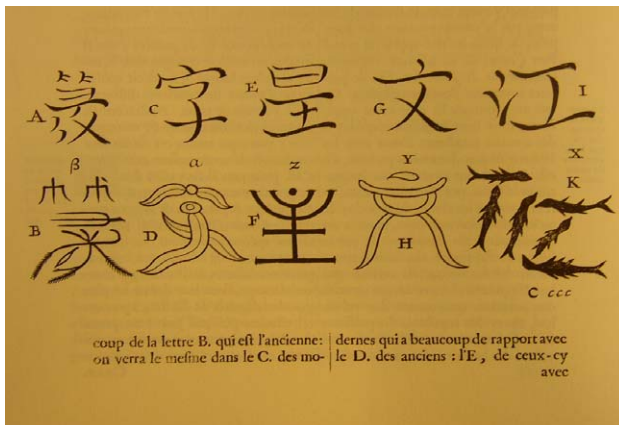 A 篆 C 字 E 星 G 文 I 江
β a z Y X
B D F H K
C ccc
coup de la lettre B. qui eſt l'ancienne:
on verra le meſme dans le C. des mo-
dernes qui a beaucoup de rapport avec
le D. des anciens : l'E, de ceux-cy
avec